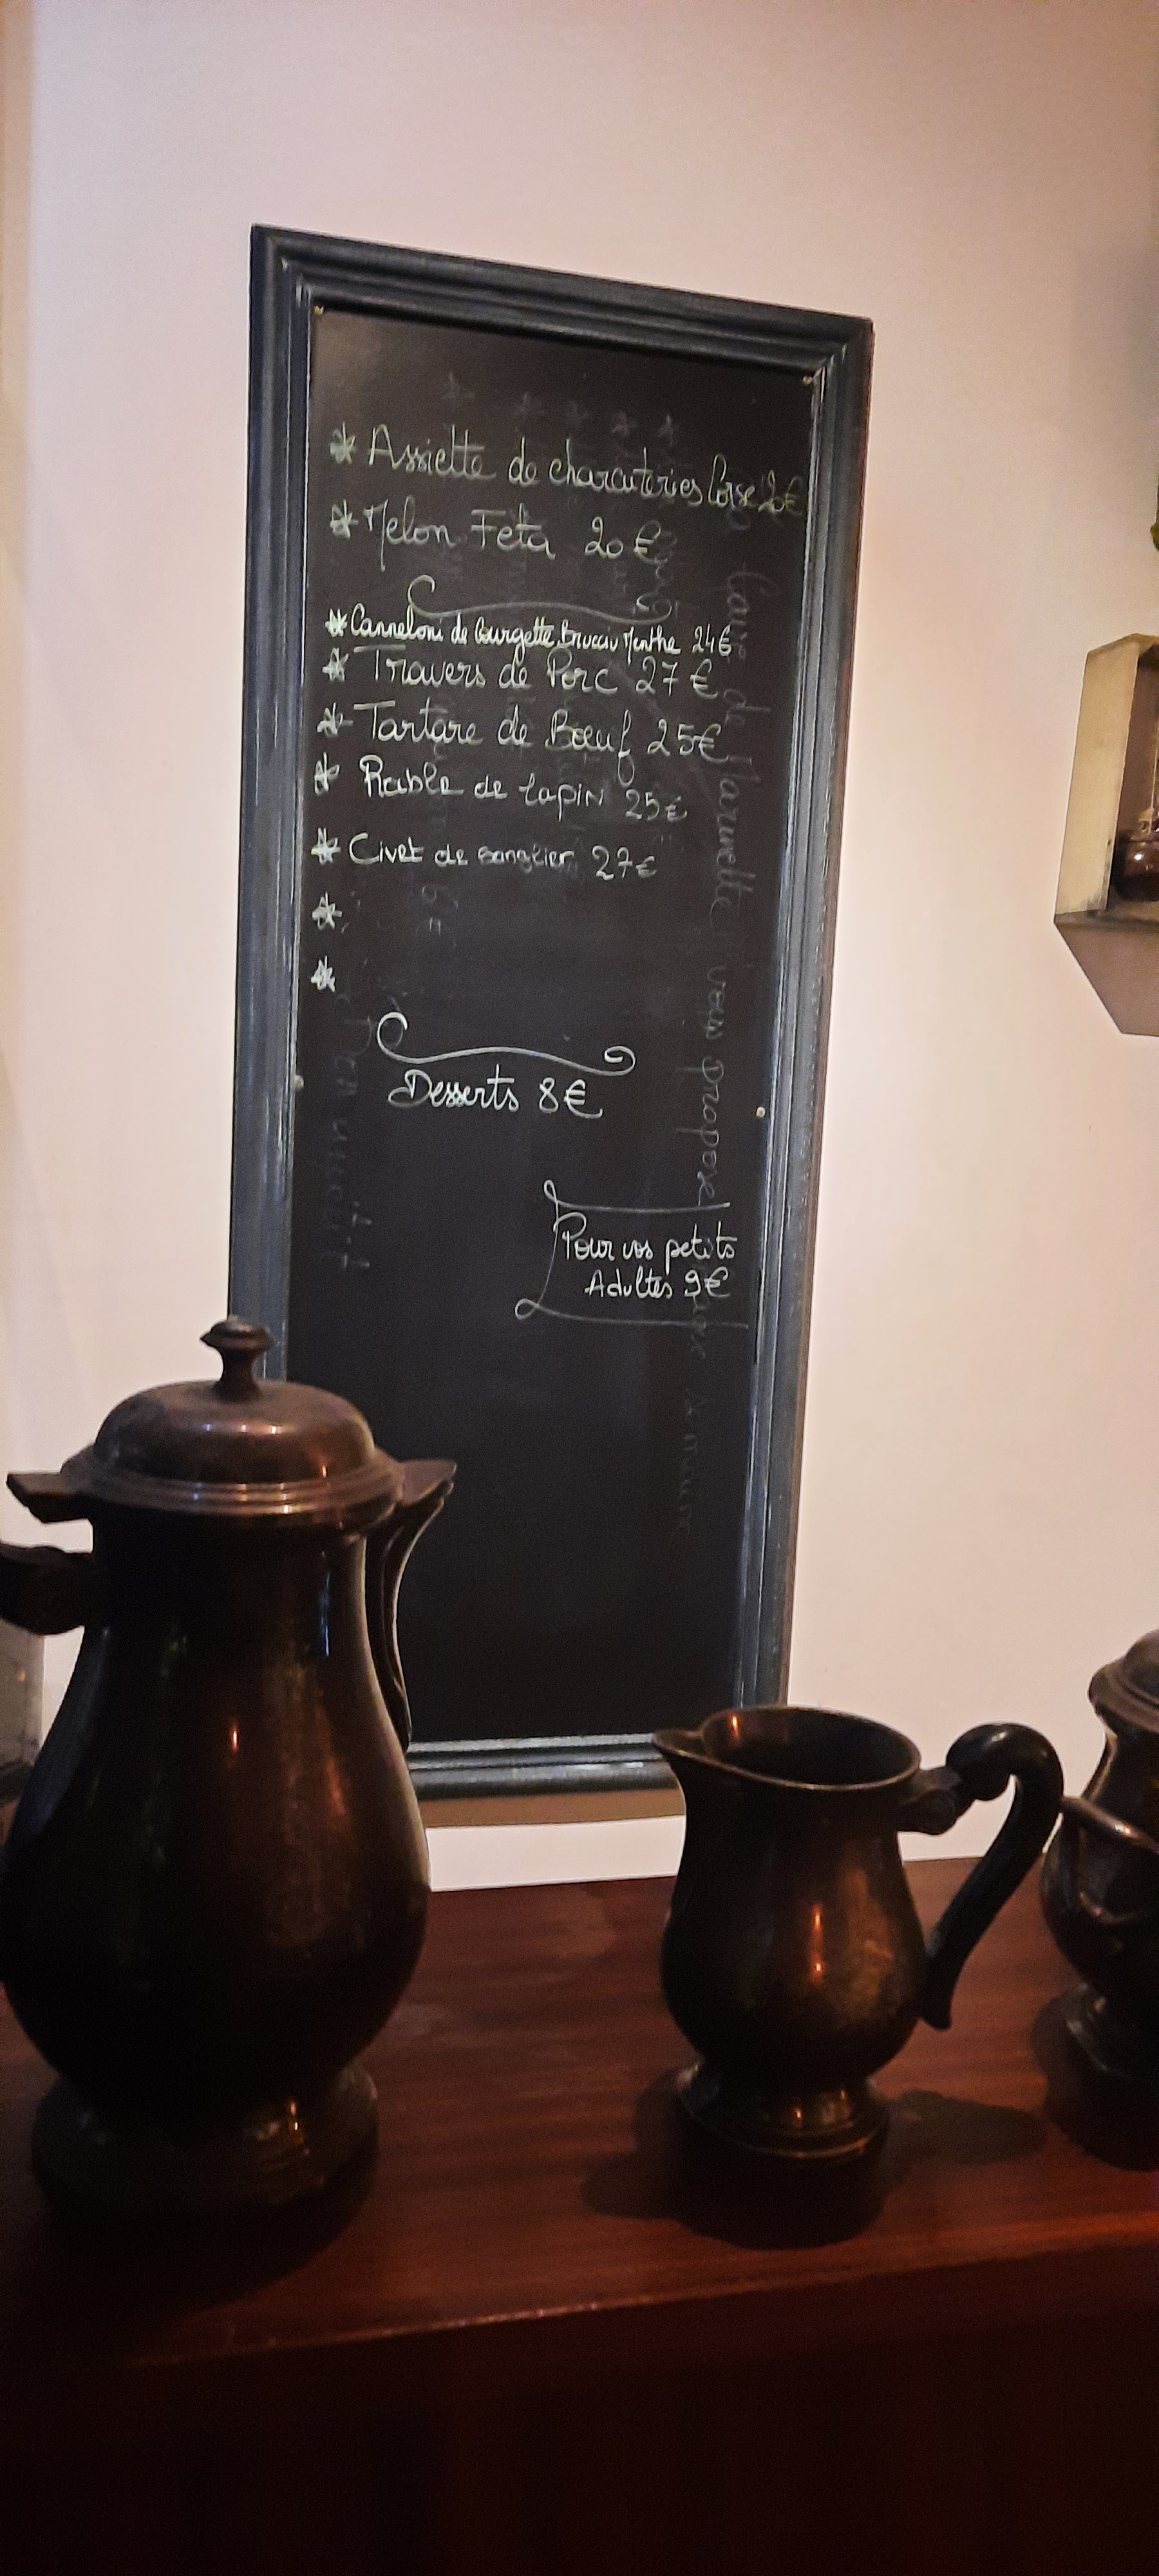 * Assiette de charcuteries Corse 20€
* Melon Feta 20€
* Canneloni de Courgette Brucciu Menthe 24€
* Travers de Porc 27€
* Tartare de Bœuf 25€
* Rable de lapin 25€
* Civet de sanglier 27€
*
*
Desserts 8€
Pour vos petits
Adultes 9€